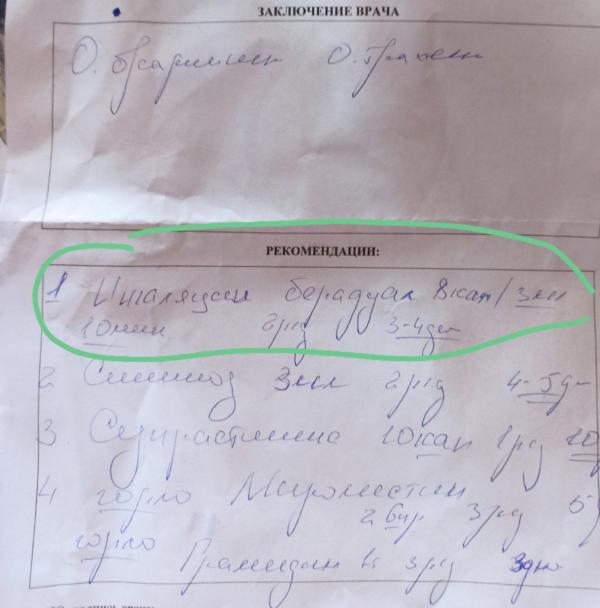 ЗАКЛЮЧЕНИЕ ВРАЧА
О. фарингит О. трахеит
РЕКОМЕНДАЦИИ:
1 Ингаляции беродуал 8 кап / 3 мл
10 мин 2 р/д 3-4 дн
2 Синекод 3 мл 2 р/д 4-5 дн
3. Супрастинекс 10 кап 1 р/д 10
4 горло Мирамистин
2 впр 3 р/д 5
горло Грамидин 3 р/д 3 дн